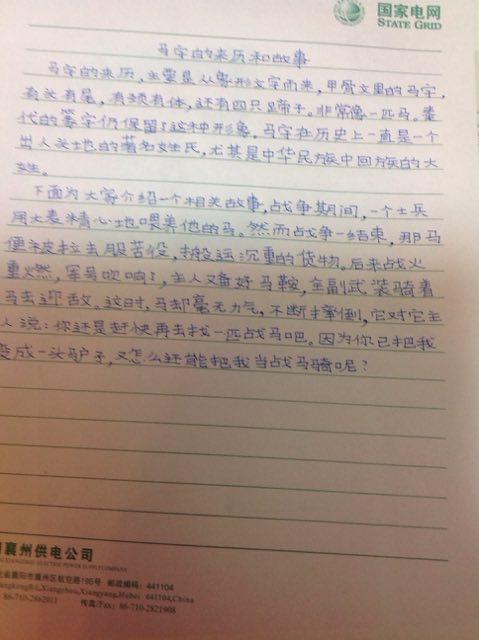 国家电网
STATE GRID
马字的来历和故事
马字的来历,主要是从象形文字而来,甲骨文里的马字,
有头有尾,有颈有体,还有四只足蹄子。非常像一匹马。秦
代的篆字仍保留了这种形象。马字在历史上一直是一个
出人头地的著名姓氏,尤其是中华民族中回族的大
姓。
下面为大家介绍一个相关故事,战争期间,一个士兵
用大麦精心地喂养他的马。然而战争一结束,那马
便被拉去服苦役,搬运沉重的货物。后来战火
重燃,军号吹响了,主人又备好马鞍,全副武装骑着
马去迎敌。这时,马却毫无力气,不断摔倒,它对它主
人说:你还是赶快再去找一匹战马吧。因为你已把我
变成一头驴子,又怎么还能把我当战马骑呢?
襄州供电公司
省襄阳市襄州区航空路195号 邮政编码:441104
Xiangzhou,Xiangyang,Hubei 441104,China
86-710-2882011 传真Fax: 86-710-2821908